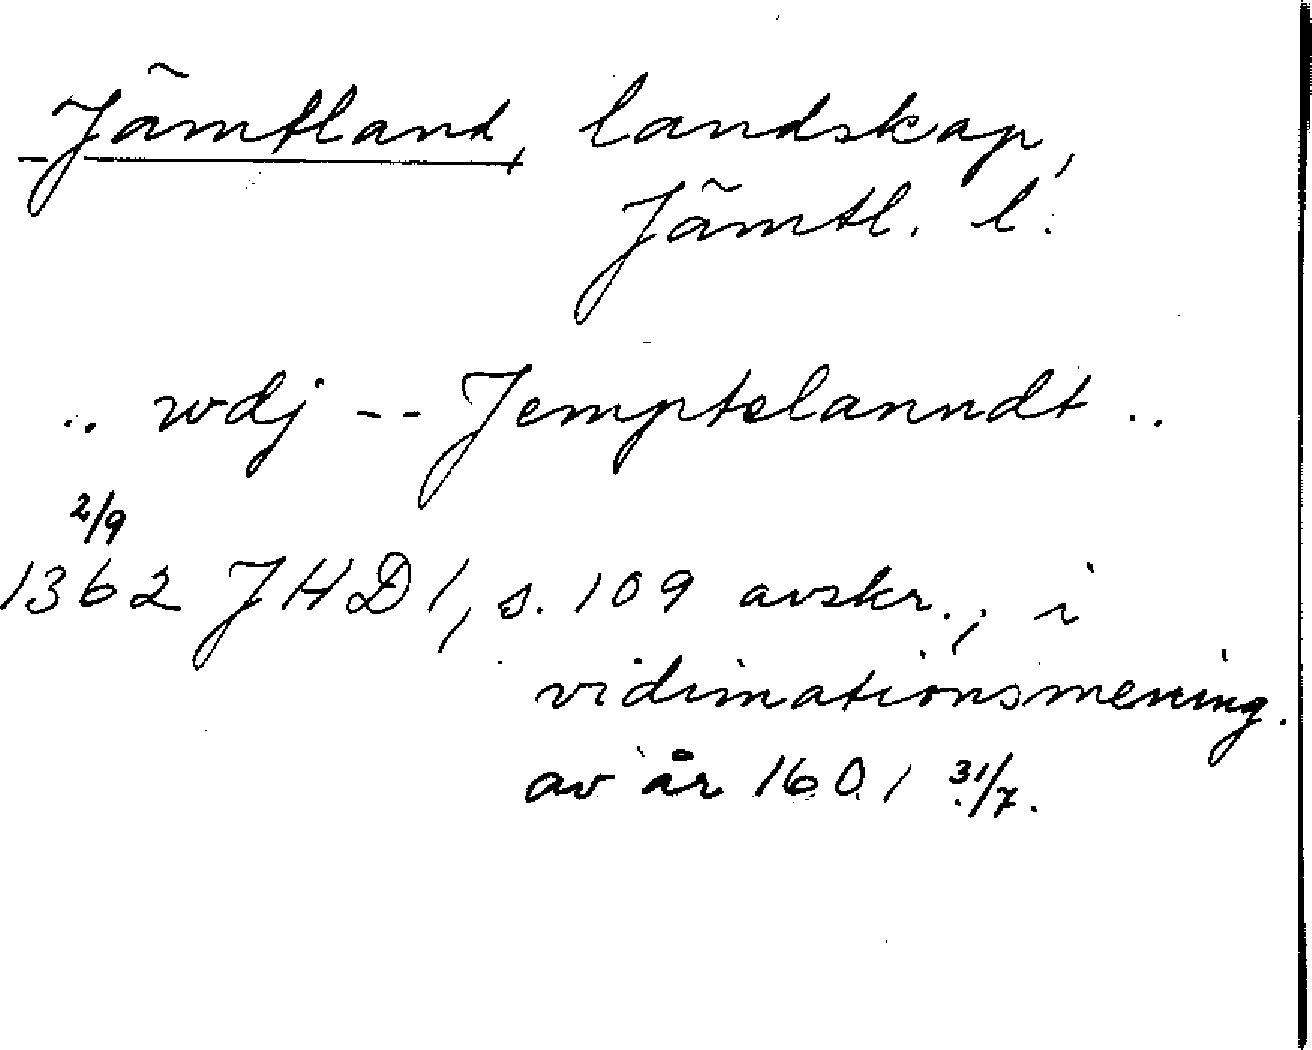 Jämtland, landskap,
Jämtl. l.
.. wdj -- Jemptelanndt ..
2/9
1362 JHD 1, s. 109 avskr., i
vidimationsmening.
av år 1601 31/7.